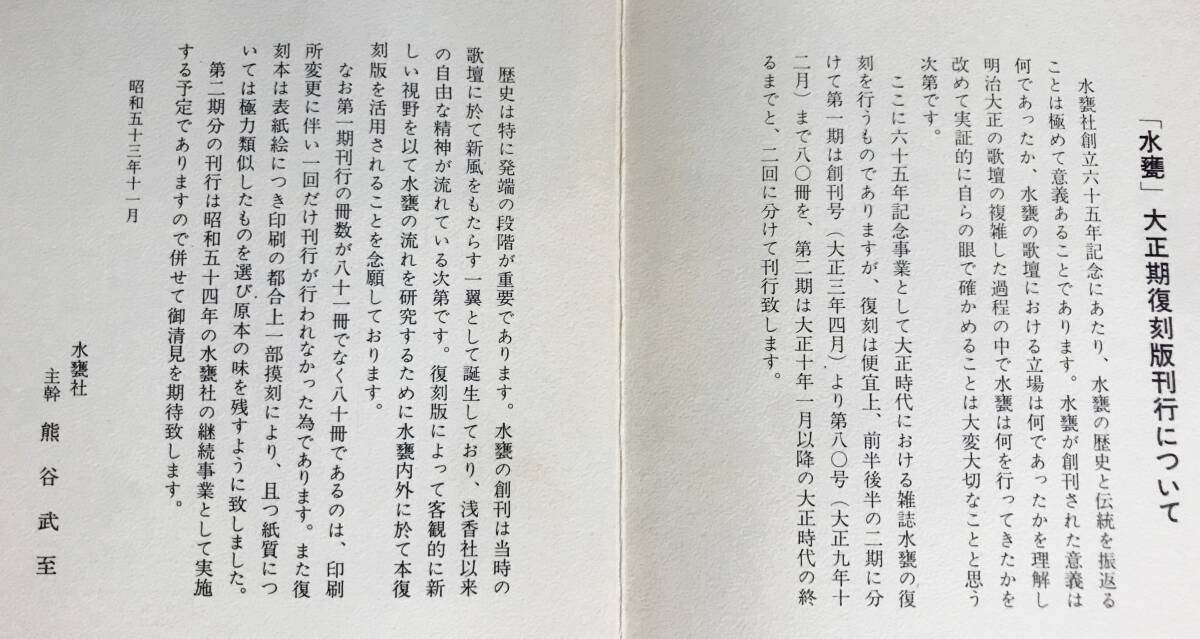 「水甕」大正期復刻版刊行について
水甕社創立六十五年記念にあたり、水甕の歴史と伝統を振返る
ことは極めて意義あることであります。水甕が創刊された意義は
何であったか、水甕の歌壇における立場は何であったかを理解し
明治大正の歌壇の複雑した過程の中で水甕は何を行ってきたかを
改めて実証的に自らの眼で確かめることは大変大切なことと思う
次第です。
ここに六十五年記念事業として大正時代における雑誌水甕の復
刻を行うものでありますが、復刻は便宜上、前半後半の二期に分
けて第一期は創刊号（大正三年四月）より第八〇号（大正九年十
二月）まで八〇冊を、第二期は大正十年一月以降の大正時代の終
るまでと、二回に分けて刊行致します。
歴史は特に発端の段階が重要であります。水甕の創刊は当時の
歌壇に於て新風をもたらす一翼として誕生しており、浅香社以来
の自由な精神が流れている次第です。復刻版によって客観的に新
しい視野を以て水甕の流れを研究するために水甕内外に於て本復
刻版を活用されることを念願しております。
なお第一期刊行の冊数が八十一冊でなく八十冊であるのは、印刷
所変更に伴い一回だけ刊行が行われなかった為であります。また復
刻本は表紙絵につき印刷の都合上一部摸刻により、且つ紙質につ
いては極力類似したものを選び原本の味を残すように致しました。
第二期分の刊行は昭和五十四年の水甕社の継続事業として実施
する予定でありますので併せて御清見を期待致します。
昭和五十三年十一月
水甕社
主幹 熊谷武至